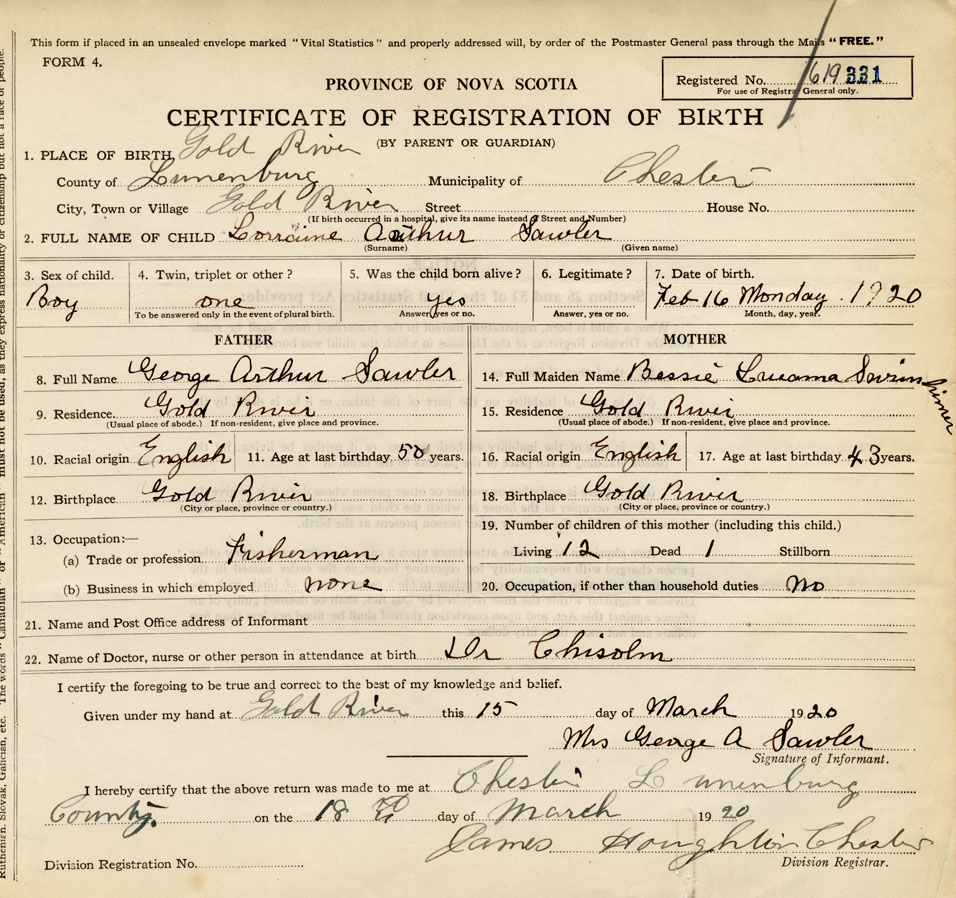 This form if placed in an unsealed envelope marked "Vital Statistics" and properly addressed will, by order of the Postmaster General pass through the Mails "FREE."
FORM 4.
Registered No. 619 331
For use of Registrar General only.
PROVINCE OF NOVA SCOTIA
CERTIFICATE OF REGISTRATION OF BIRTH
(BY PARENT OR GUARDIAN)
1. PLACE OF BIRTH Gold River
County of Lunenburg Municipality of Chester
City, Town or Village Gold River Street House No.
(If birth occurred in a hospital, give its name instead of Street and Number)
2. FULL NAME OF CHILD Lorraine Arthur Sawler
(Surname) (Given name)
3. Sex of child. 4. Twin, triplet or other? 5. Was the child born alive? 6. Legitimate? 7. Date of birth.
Boy one yes Feb 16 Monday 1920
To be answered only in the event of plural birth. Answer, yes or no. Answer, yes or no. Month, day, year.
FATHER MOTHER
8. Full Name George Arthur Sawler 14. Full Maiden Name Bessie
9. Residence. Gold River 15. Residence Gold River
(Usual place of abode.) If non-resident, give place and province. (Usual place of abode.) If non-resident, give place and province.
10. Racial origin English 11. Age at last birthday 50 years. 16. Racial origin English 17. Age at last birthday 43 years.
12. Birthplace Gold River 18. Birthplace Gold River
(City or place, province or country.) (City or place, province or country.)
13. Occupation:— 19. Number of children of this mother (including this child.)
(a) Trade or profession Fisherman Living 12 Dead 1 Stillborn
(b) Business in which employed none 20. Occupation, if other than household duties No
21. Name and Post Office address of Informant
22. Name of Doctor, nurse or other person in attendance at birth Dr Chisolm
I certify the foregoing to be true and correct to the best of my knowledge and belief.
Given under my hand at Gold River this 15 day of March 1920
Mrs George A Sawler
Signature of Informant.
I hereby certify that the above return was made to me at Chester Lunenburg
County. on the 18 day of March 1920
James Houghton Chester
Division Registration No. Division Registrar.